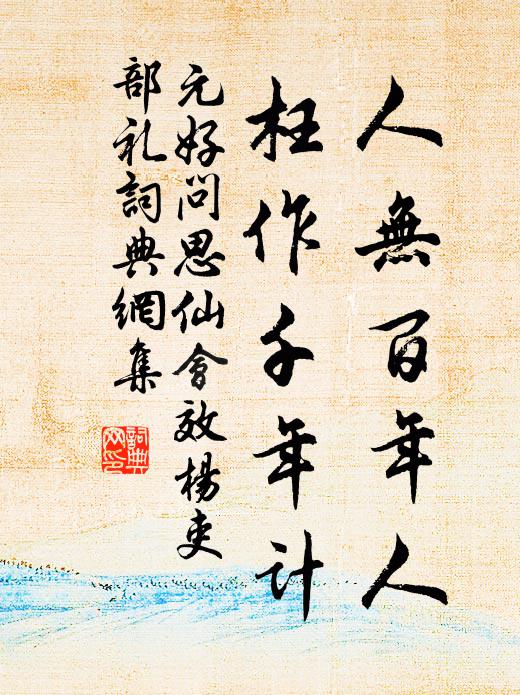 人無百年人
枉作千年计
元好問思仙會效楊吏
部礼詞典網集
詞典
网印